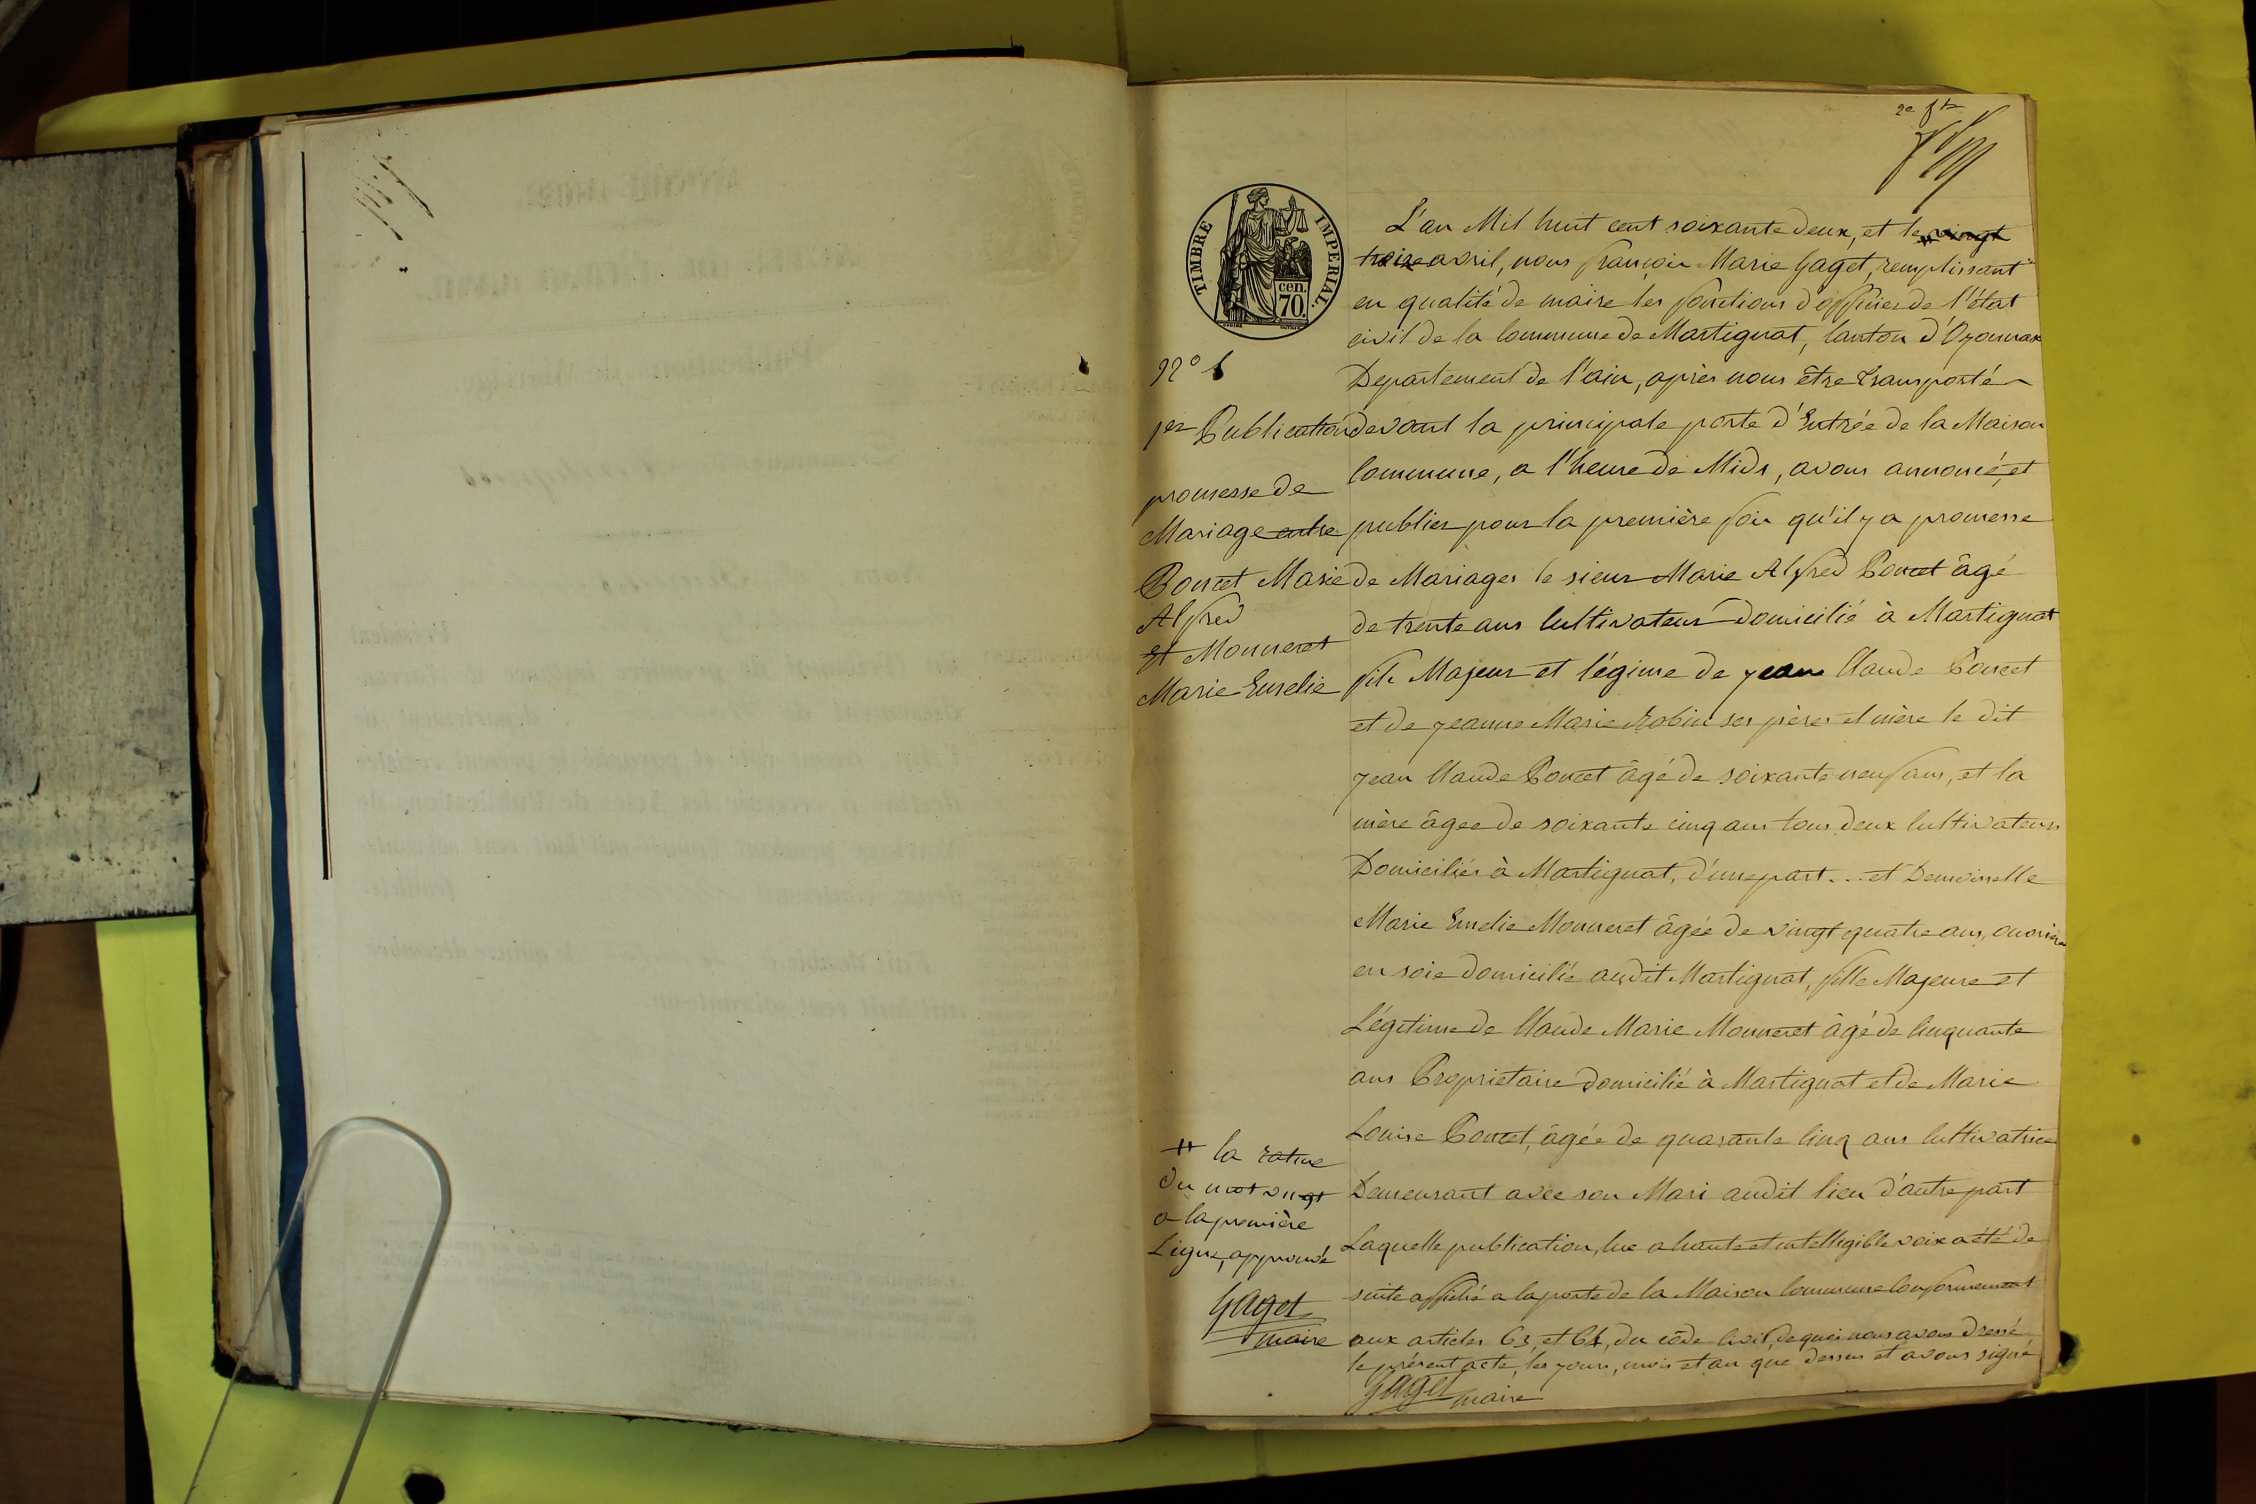 2e ft
TIMBRE IMPERIAL.
cen.
70.
No 1
1er Publication
promesse de
Mariage entre
Poncet Marie
Alfred
Et Monneret
Marie Emelie
L'an Mil huit cent soixante deux, et le # vingt
treize avril, nous françois Marie Gaget, remplissant
en qualité de maire les fonctions d'officier de l'état
civil de la Commune de Martignat, Canton d'Oyonnax
Departement de l'ain, après nous être transporté
devant la principale porte d'Entrée de la Maison
Commune, a l'heure de Midi, avons annoncé, et
publier pour la première fois qu'il y a promesse
de Mariages le sieur Marie Alfred Poncet âgé
de trente ans Cultivateur Domicilié à Martignat
fils Majeur et légime de jean Claude Poncet
et de jeanne Marie Robin ses pères et mère le dit
jean Claude Poncet âgé de soixante neuf ans, et la
mère âgee de soixante cinq ans tous deux Cultivateurs
Domiciliés à Martignat, d'une part... et Demoiselle
Marie Emelie Monneret âgée de vingt quatre ans, ouvrière
en soie domicilié audit Martignat, fille Majeure et
Légetime de Claude Marie Monneret âgé de Cinquante
ans Propriétaire domicilié à Martignat et de Marie
Louise Poncet, âgée de quarante Cinq ans Cultivatrice
Demeurant avec son Mari audit lieu d'autre part
Laquelle publication, lue a haute et intelligible voix a été de
suite affiché a la porte de la Maison Commune Conformement
aux articles 63, et 64, du côde Civil, de quoi nous avons dressé
le présent acte, les jours, mois et an que dessus et avons signé
Gaget maire
# la rature
du mot vingt
a la première
Ligne, approuvé
Gaget
maire